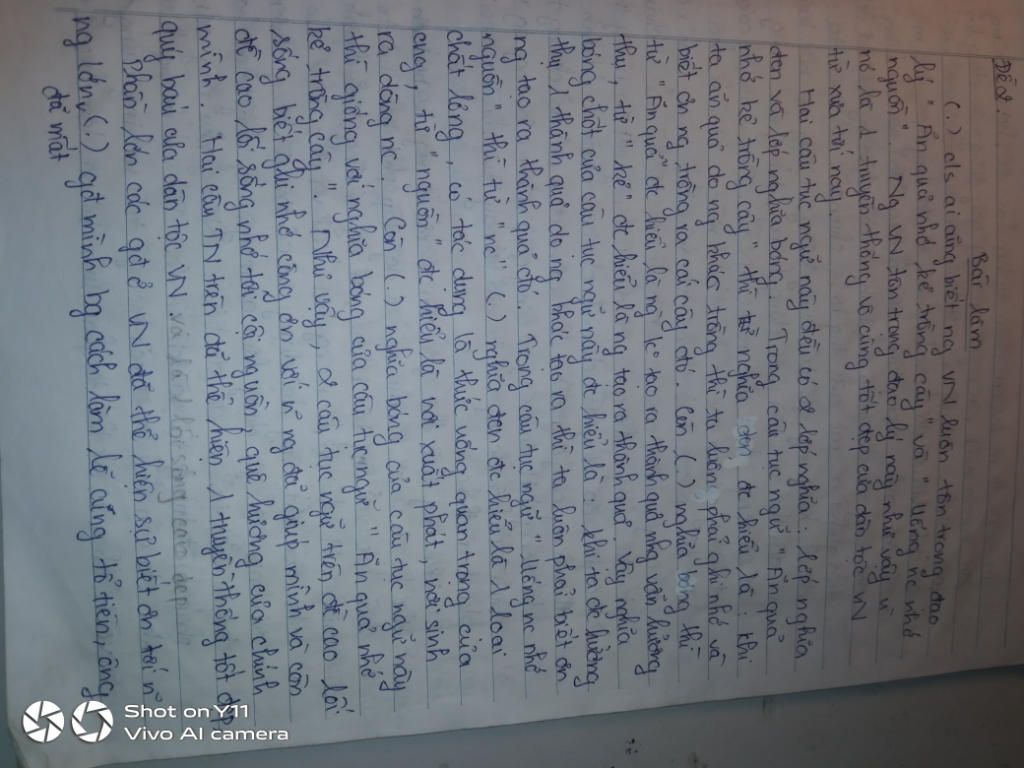 Đề 2
Bài làm
(.) c/s ai cũng biết ng VN luôn tôn trọng đạo
lý " Ăn quả nhớ kẻ trồng cây " và " Uống nc nhớ
nguồn ". Ng VN tôn trọng đạo lý này như vậy vì
nó là 1 truyền thống vô cùng tốt đẹp của dân tộc VN
từ xưa tới nay.
Hai câu tục ngữ này đều có 2 lớp nghĩa : lớp nghĩa
đen và lớp nghĩa bóng. Trong câu tục ngữ " Ăn quả
nhớ kẻ trồng cây " thì nghĩa đen đc hiểu là : khi
ta ăn quả do ng khác trồng thì ta luôn phải ghi nhớ và
biết ơn ng trồng ra cái cây đó. Còn (.) nghĩa bóng thì
từ " Ăn quả " đc hiểu là ng k tạo ra thành quả nhg vẫn hưởng
thụ, từ " kẻ " đc hiểu là ng tạo ra thành quả. Vậy nghĩa
bóng chốt của câu tục ngữ này đc hiểu là : khi ta đc hưởng
thụ 1 thành quả do ng khác tạo ra thì ta luôn phải biết ơn
ng tạo ra thành quả đó. Trong câu tục ngữ " Uống nc nhớ
nguồn " thì từ " nc " (.) nghĩa đen đc hiểu là 1 loại
chất lỏng, có tác dụng là thức uống quan trọng của
cng, từ " nguồn " đc hiểu là nơi xuất phát, nơi sinh
ra dòng nc. Còn (.) nghĩa bóng của câu tục ngữ này
thì giống với nghĩa bóng của câu tục ngữ " Ăn quả nhớ
kẻ trồng cây ". Như vậy, 2 câu tục ngữ trên đề cao lối
sống biết ghi nhớ công ơn với n~ ng đã giúp mình và còn
đề cao lối sống nhớ tới cội nguồn, quê hương của chính
mình. Hai câu TN trên đã thể hiện 1 truyền thống tốt đẹp
quý báu của dân tộc VN
Phần lớn các gđ ở VN đã thể hiện sự biết ơn tới n~
ng lớn (.) gđ mình bg cách làm lễ cúng tổ tiên, ông
đã mất
Shot on Y11
Vivo AI camera